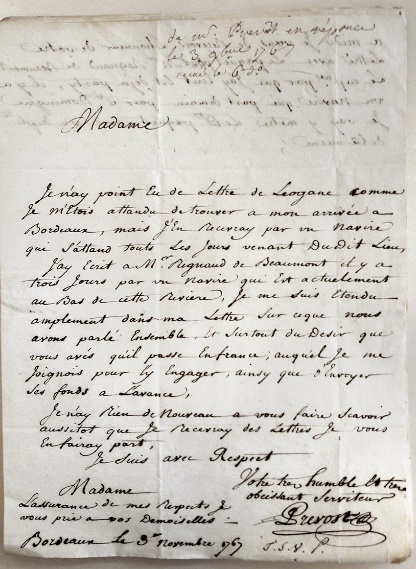 de mr. Prevost en réponce
le 3 9bre 1767
Madame
Je n'ay point Eu de Lettre de Leogane comme
Je m'Etois attandu de trouver a mon arrivée a
Bordeaux, mais J'En Recevray par un Navire
qui S'attand touts Les Jours venant Du Dit Lieu,
J'ay Ecrit a Mr. Regnaud de Beaumont il y a
trois Jours par un Navire qui Est actuelement
au Bas de cette Riviere, Je me Suis Etendu
amplement dans ma Lettre Sur ceque nous
avons parlé Ensemble, Et Surtout du Desir que
vous avés qu'il passe En france, auquel Je me
Joignois pour Ly Engager, ainsy que d'Envoyer
Ses fonds a Lavance,
Je n'ay Rien de Nouveau a vous faire Scavoir
aussitot que Je Recevray des Lettres Je vous
En fairay part,
Je Suis avec Respect
Madame
Votre tres humble Et tres
obeissant Serviteur
Prevost
Lassurance de mes Respects Je
vous prie a vos Demoiselles
Bordeaux Le 3e novembre 1767
T.S.V.P.